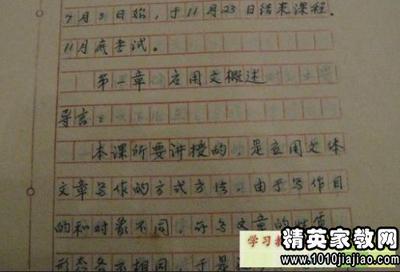 9月3日始，于11月23日结束课程.
11月底考试.
第一章 应用文概述
导言：
本课所要讲授的，是应用文体
文章写作的方式方法。由于写作目
的和对象不同，所写文章的性质、
形态各不相同，于是
学习
精英家教网
www.1010jiajiao.com